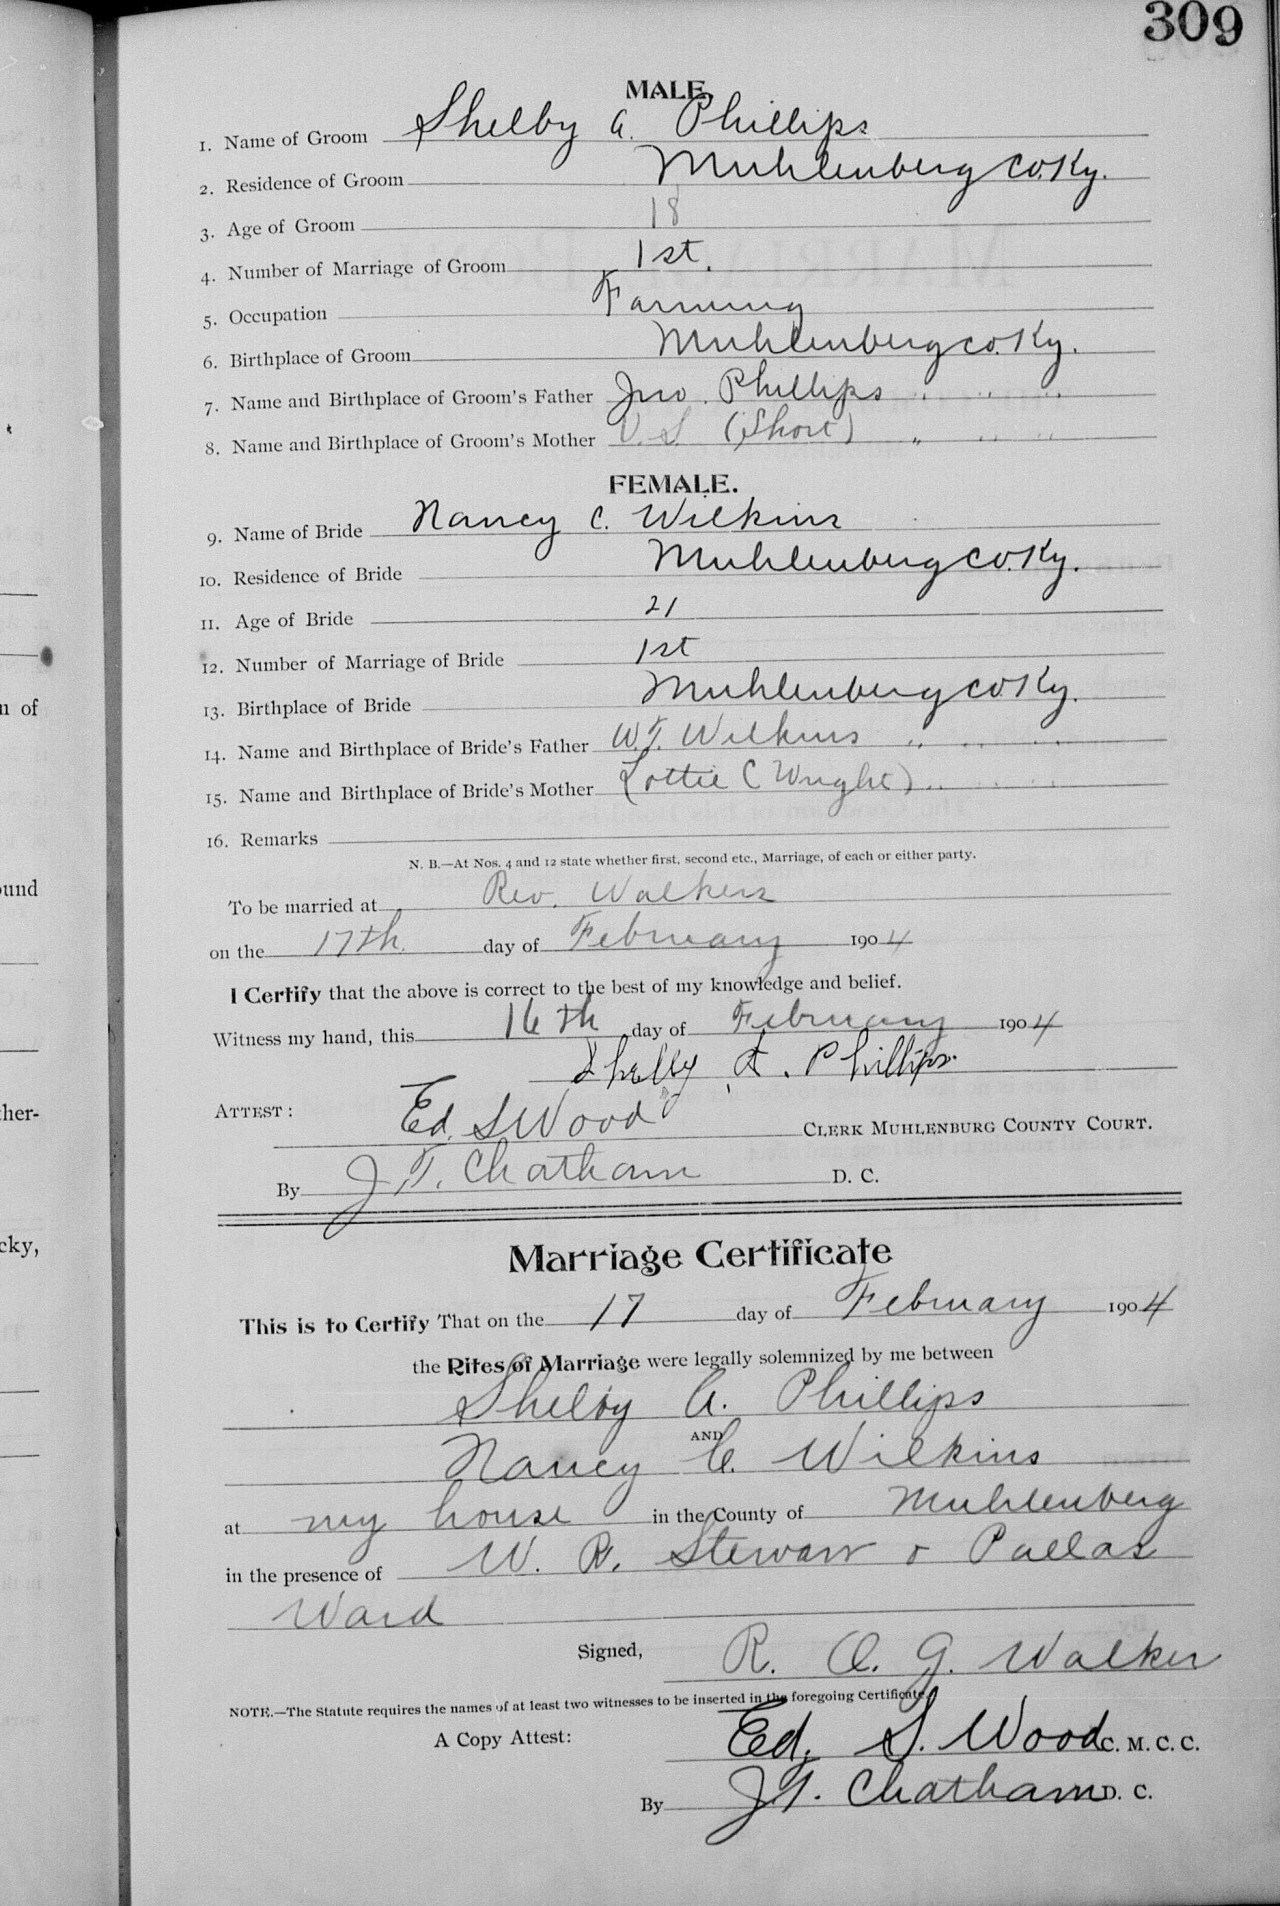 309
MALE.
1. Name of Groom Shelby A. Phillips
2. Residence of Groom Muhlenberg Co. Ky.
3. Age of Groom 18
4. Number of Marriage of Groom 1st.
5. Occupation Farming
6. Birthplace of Groom Muhlenberg Co. Ky.
7. Name and Birthplace of Groom's Father Jno. Phillips " " "
8. Name and Birthplace of Groom's Mother V. S (Short) " " "
FEMALE.
9. Name of Bride Nancy C. Wilkins
10. Residence of Bride Muhlenberg Co. Ky.
11. Age of Bride 21
12. Number of Marriage of Bride 1st
13. Birthplace of Bride Muhlenberg Co Ky.
14. Name and Birthplace of Bride's Father W. T. Wilkins " " "
15. Name and Birthplace of Bride's Mother Lottie (Wright) " " "
16. Remarks
N. B.—At Nos. 4 and 12 state whether first, second etc., Marriage, of each or either party.
To be married at Rev. Walkers
on the 17th. day of February 1904
I Certify that the above is correct to the best of my knowledge and belief.
Witness my hand, this 16th day of February 1904
Shelby A. Phillips.
ATTEST: Ed. S Wood CLERK MUHLENBURG COUNTY COURT.
By J. T. Chatham D. C.
Marriage Certificate
This is to Certify That on the 17 day of February 1904
the Rites of Marriage were legally solemnized by me between
Shelby A. Phillips
AND
Nancy C. Wilkins
at my house in the County of Muhlenberg
in the presence of W. R. Stewart & Pallas
Ward
Signed, R. O. G. Walker
NOTE.—The Statute requires the names of at least two witnesses to be inserted in the foregoing Certificate.
A Copy Attest: Ed. S. Wood C. M. C. C.
By J. T. Chatham D. C.